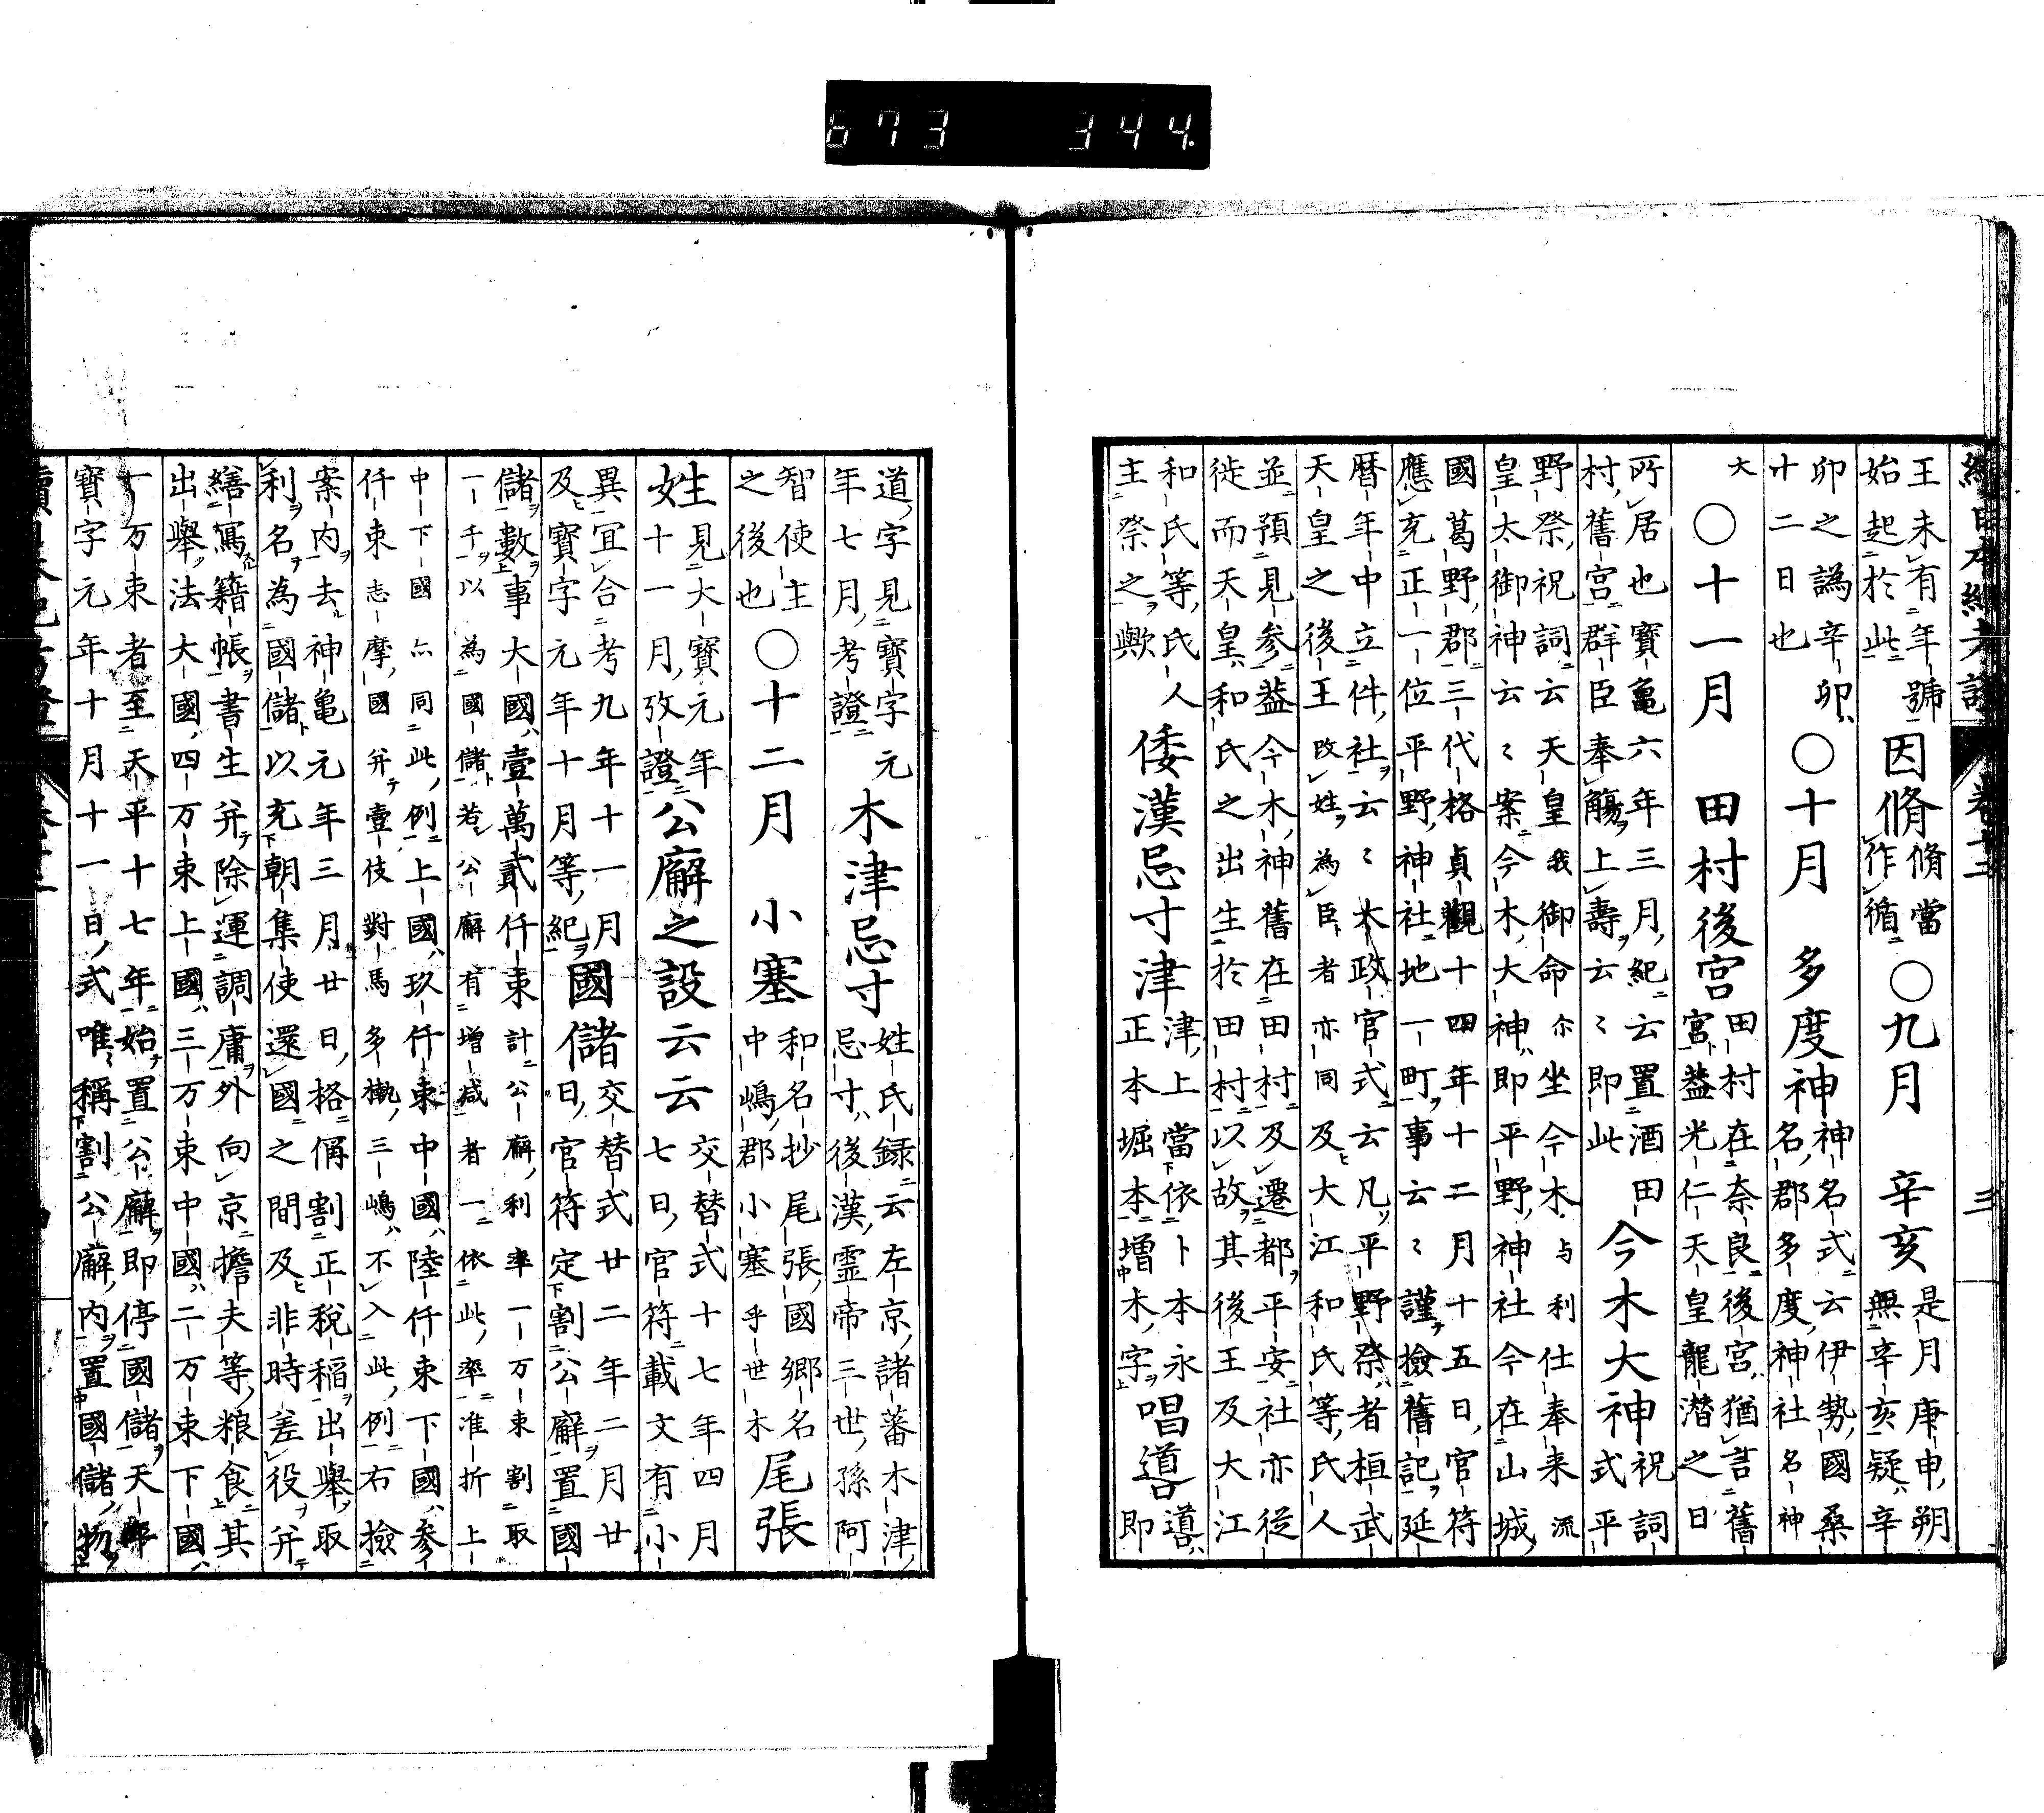 673 344.
續日本紀考證 卷十二 三
王未有年號
始起於此
因脩
脩當
作循
○九月 辛亥
是月庚申朔
無辛亥疑辛
卯之譌辛卯
十二日也
○十月 多度神
神名式云伊勢國桑
名郡多度神社名神
大
○十一月 田村後宮
田村在奈良後宮猶言舊
宮蓋光仁天皇龍潛之日
所居也寶龜六年三月紀云置酒田
村舊宮群臣奉觴上壽云〻即此
今木大神
祝詞
式平
野祭祝詞云天皇我御命尓坐今木与利仕奉来流
皇太御神云〻案今木大神即平野神社今在山城
國葛野郡三代格貞觀十四年十二月十五日官符
應充正一位平野神社地一町事云〻謹撿舊記延
曆年中立件社云〻太政官式云凡平野祭者桓武
天皇之後王改姓為臣者亦同及大江和氏等氏人
並預見参蓋今木神舊在田村及遷都平安社亦從
徙而天皇和氏之出生於田村以故其後王及大江
和氏等氏人
主祭之歟
倭漢忌寸津
津上當依卜本永
正本堀本增木字
唱道
道即
道字見寶字元
年七月考證
木津忌寸
姓氏録云左京諸蕃木津
忌寸後漢靈帝三世孫阿
智使主
之後也
○十二月 小塞
和名抄尾張國郷名
中嶋郡小塞乎世木
尾張
姓
見大寶元年
十一月攷證
公廨之設云云
交替式十七年四月
七日官符載文有小
異宜合考九年十一月
及寶字元年十月等紀
國儲
交替式廿二年二月廿
日官符定割公廨置國
儲數事大國壹萬貳仟束計公廨利率一万束割取
一千以為國儲若公廨有增減者一依此率准折上
中下國亦同此例上國玖仟束中國陸仟束下國参
仟束志摩國并壹伎對馬多褹三嶋不入此例右撿
案内去神龜元年三月廿日格偁割正税稲出舉取
利名為國儲以充朝集使還國之間及非時差役并
繕寫籍帳書生并除運調庸外向京擔夫等粮食其
出舉法大國四万束上國三万束中國二万束下國
一万束者至天平十七年始置公廨即停國儲天平
寶字元年十月十一日式唯稱割公廨内置國儲物
續日本紀考證 卷十二